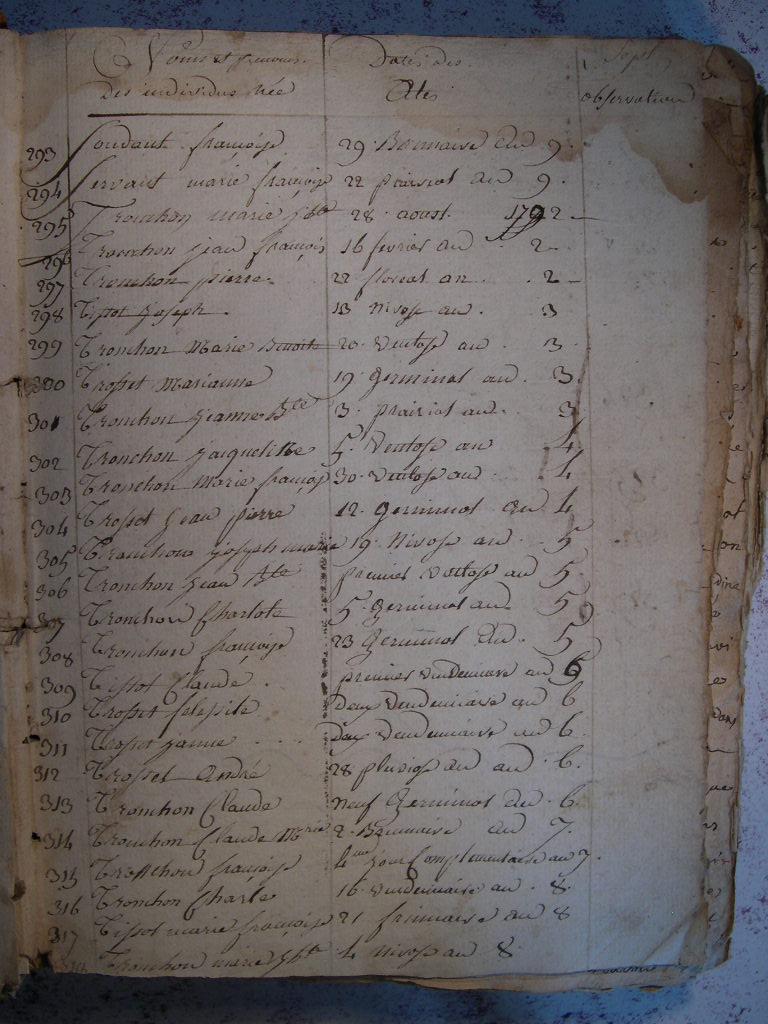 Noms et prenoms Dates des
Des individus née Actes observation
293 Soudant françoise 29 Brumaire an 9.
294 Servant marie françoise 22 prairial an 9.
295 Tronchon marie Jbte 28 aoust 1792
296 Tronchon jean françois 16 fevrier an 2
297 Tronchon pierre 22 floreal an 2
298 Tissot joseph 13 Nivose an 3
299 Tronchon Marie Benoite 20 Ventose an 3
300 Trosset Marianne 19 Germinal an 3
301 Tronchon jeanne Bte 3 prairial an 3
302 Tronchon jacqueline 5 Ventose an 4
303 Tronchon Marie françoise 30 Ventose an 4
304 Trosset jean pierre 12 Germinal an 4
305 Tranchon joseph marie 19 Nivose an 5
306 Tronchon jean Bte premier Ventose an 5
307 Tronchon Charlote 5 Germinal an 5
308 Tronchon françoise 23 Germinal an 5
309 Tissot Claude premier vendemiaire an 6
310 Trosset deux Vendemiaire an 6
311 Trosset janne deux Vendemiaire an 6
312 Trosset André 28 pluviose an an 6
313 Tronchon Claude neuf Germinal an 6
314 Tronchon Claude Mrie 2 Brumaire an 7
315 Tronchon françoise 4me jour Complementaire an 7
316 Tronchon Charle 16 vendemiaire an 8
317 Tissot marie françoise 21 frimaire an 8
Tronchon marie Jbte 4 Nivose an 8